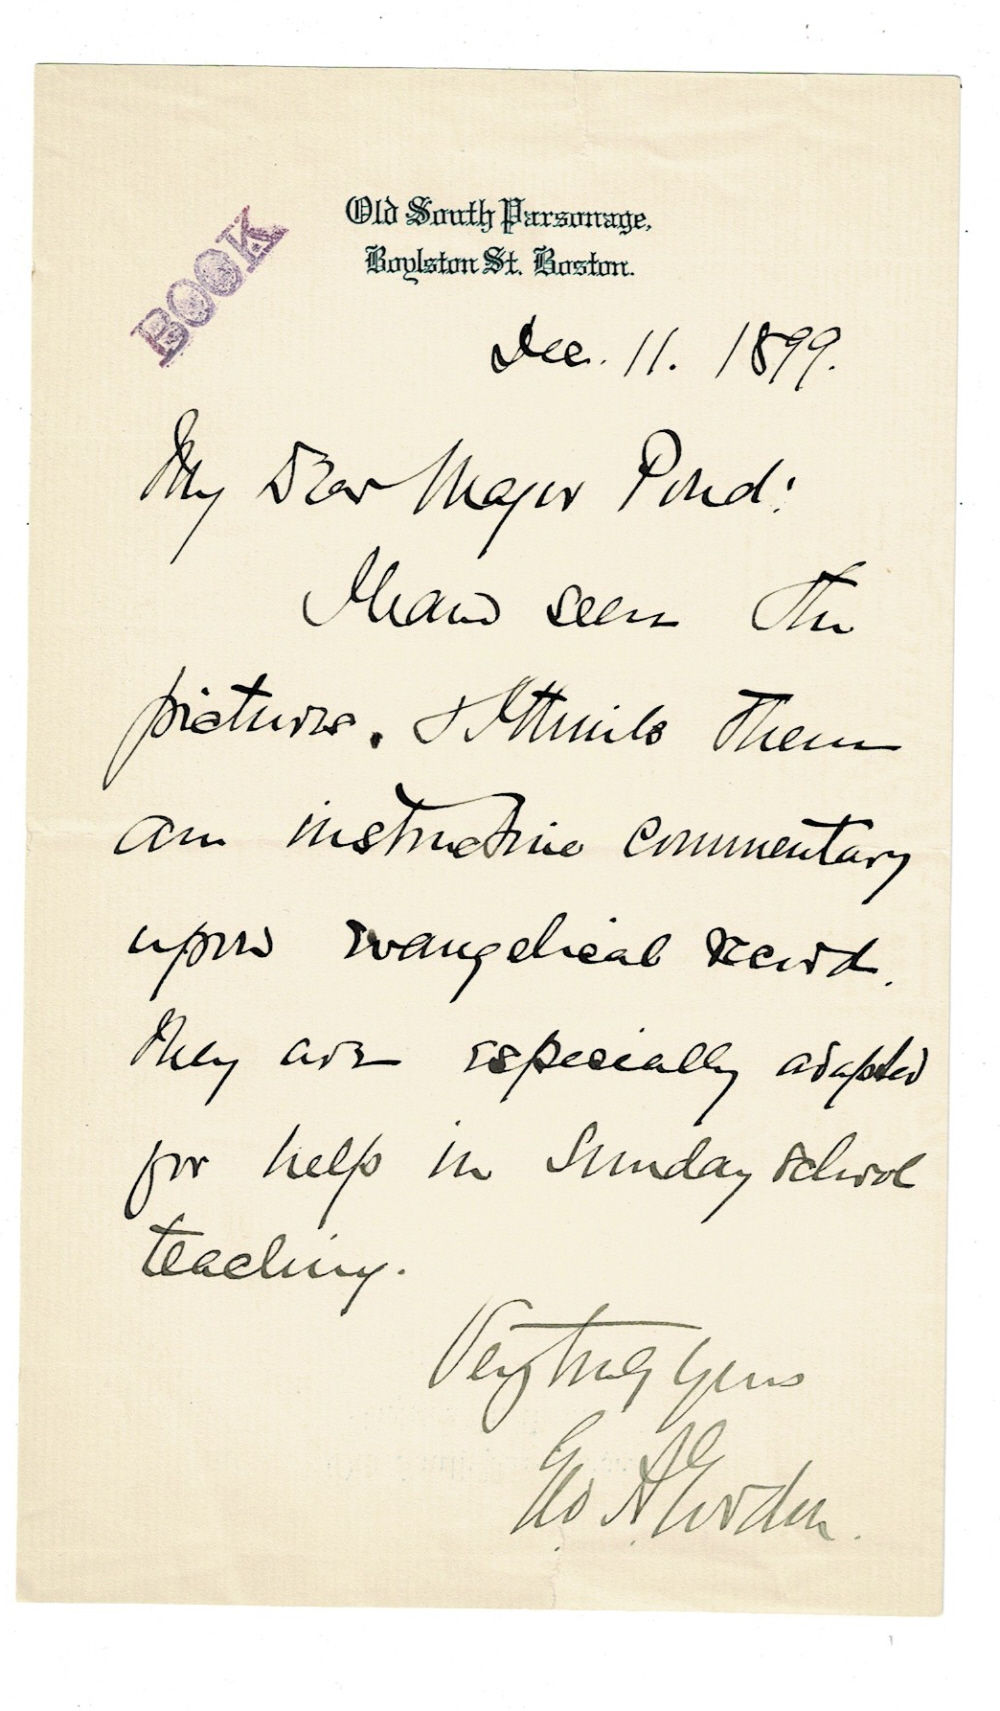 BOOK
Old South Parsonage,
Boylston St. Boston.
Dec. 11. 1899.
My Dear Major Pond:
I have seen the
pictures. & I think them
an instructive commentary
upon evangelical record.
They are especially adapted
for help in Sunday school
teaching.
Very truly yours
Geo. A. Gordon.